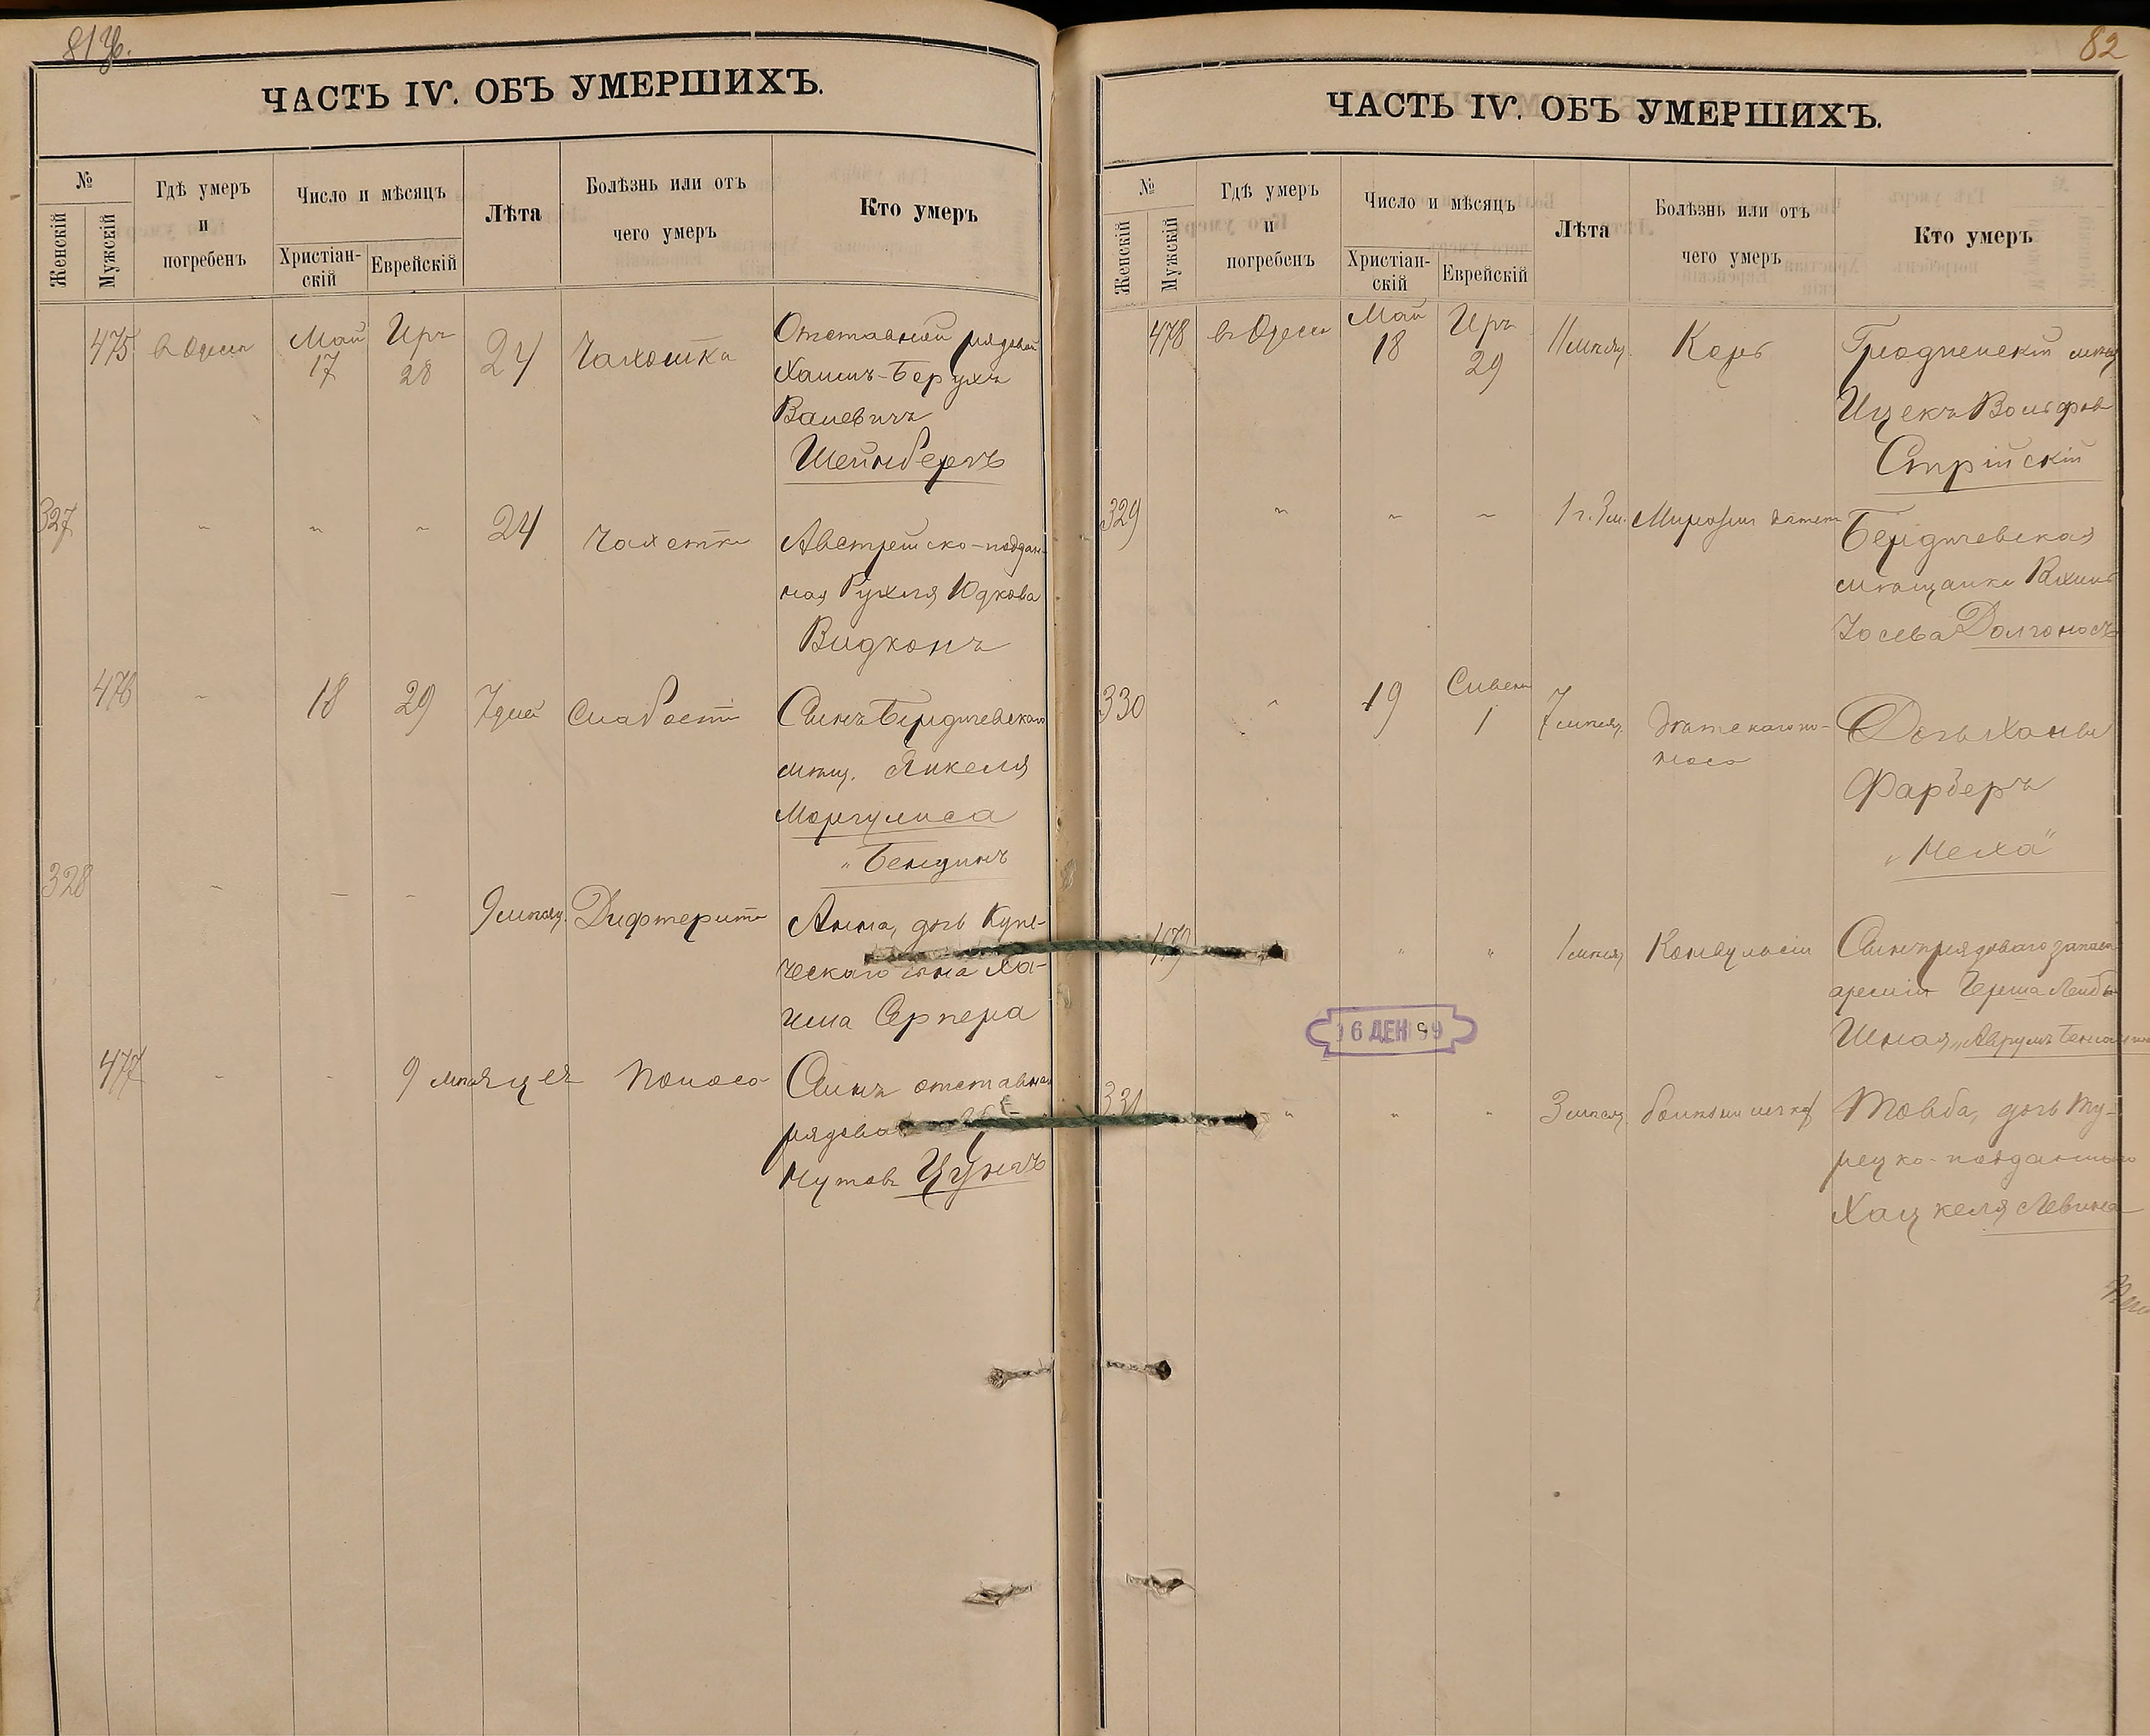 81 об.
ЧАСТЬ IV. ОБЪ УМЕРШИХЪ.
№
Женскій
Мужскій
Гдѣ умеръ
и
погребенъ
Число и мѣсяцъ
Христіан-
скій
Еврейскій
Лѣта
Болѣзнь или отъ
чего умеръ
Кто умеръ
475 в Одессѣ Май 17 Иръ 28 24 Чахотка Отставной рядовой
Хаимъ-Берухъ
Шейнбергъ
327 " " " 24 Чахотка Австрійско-поддан-
ная Рухля Юдкова
Видконъ
476 " 18 29 7 дней Слабость Сынъ Бердичевскаго
мѣщ. Янкеля
Моргулиса
„Бендинъ
328 " — " 9 мѣсяц. Дифтеритъ Анна, дочь Купе-
ческаго сына Ха-
има Серпера
477 " " " 9 мѣсяцев Поноса Сынъ отставнаго
рядова
Цунгъ
82
ЧАСТЬ IV. ОБЪ УМЕРШИХЪ.
№
Женскій
Мужскій
Гдѣ умеръ
и
погребенъ
Число и мѣсяцъ
Христіан-
скій
Еврейскій
Лѣта
Болѣзнь или отъ
чего умеръ
Кто умеръ
478 в Одессѣ Май 18 Иръ 29 11 мѣсяц. Корь Гродненскій мѣщ
Ицекъ Вольфов
Стрійскій
329 " " " 1 г. 3 м. Бердичевская
мѣщанка Рахиль
Іосева Долгоносъ
330 " 19 Сиванъ 1 7 мѣсяц. Дѣтскаго по-
носа
Дочь Ханы
Фарберъ
„Неха"
479 " " 1 мѣсяц Конвульсіи Сынъ рядоваго запаса
арміи Герша Лейбы
Шная „Аврумъ
16 ДЕК 99
331 " " " 3 мѣсяц. Товба, дочь Ту-
рецко-подданнаго
Хацкеля Левина